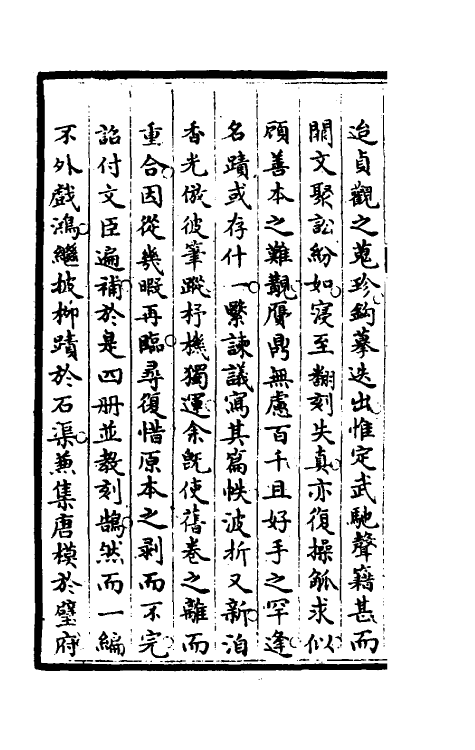 迨貞觀之蒐珍鈎摹迭出惟定武馳聲籍甚而
闕文聚訟紛如寖至翻刻失真亦復操觚求似
碩善本之難覯贗鼎無慮百千且好手之罕逢
名蹟或存什一繄諫議寫其篇帙波折又新洎
香光倣彼筆蹤杼機獨運余既使舊卷之離而
重合因從幾暇再臨尋復惜原本之剥而不完
詔付文臣遍補於是四册並教刻鵠然而一編
不外戲鴻繼披柳蹟於石渠兼集唐模於璧府